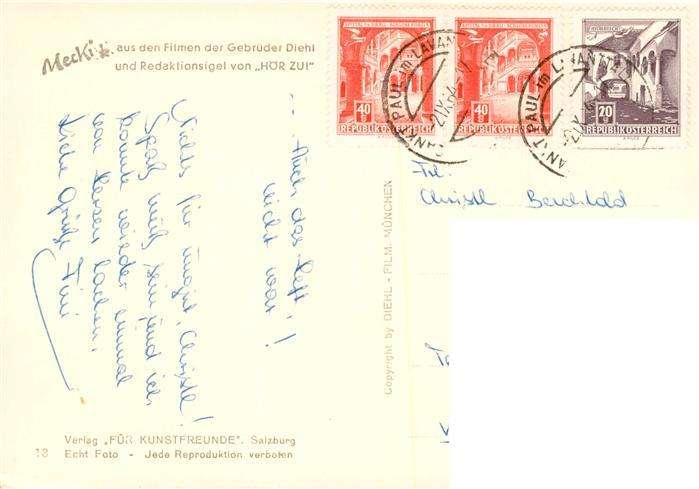 Mecki
aus den Filmen der Gebrüder Diehl
und Redaktionsigel von „HÖR ZU!"
SPITTAL
40 g
REPUBLIK ÖSTERREICH
40 g
REPUBLIK ÖSTERREICH
20 g
REPUBLIK ÖSTERREICH
SANKT PAUL im LAVANTTAL
SANKT PAUL im LAVANTTAL
Frl.
Christl Berchtold
-- Auch das
nicht wahr!
Nichts für ungut, Christl!
Spaß muß sein und ich
konnte wieder einmal
von Herzen lachen,
Liebe Grüße Fini
Copyright by DIEHL - FILM, MÜNCHEN
Verlag „FÜR KUNSTFREUNDE", Salzburg
13 Echt Foto - Jede Reproduktion verboten